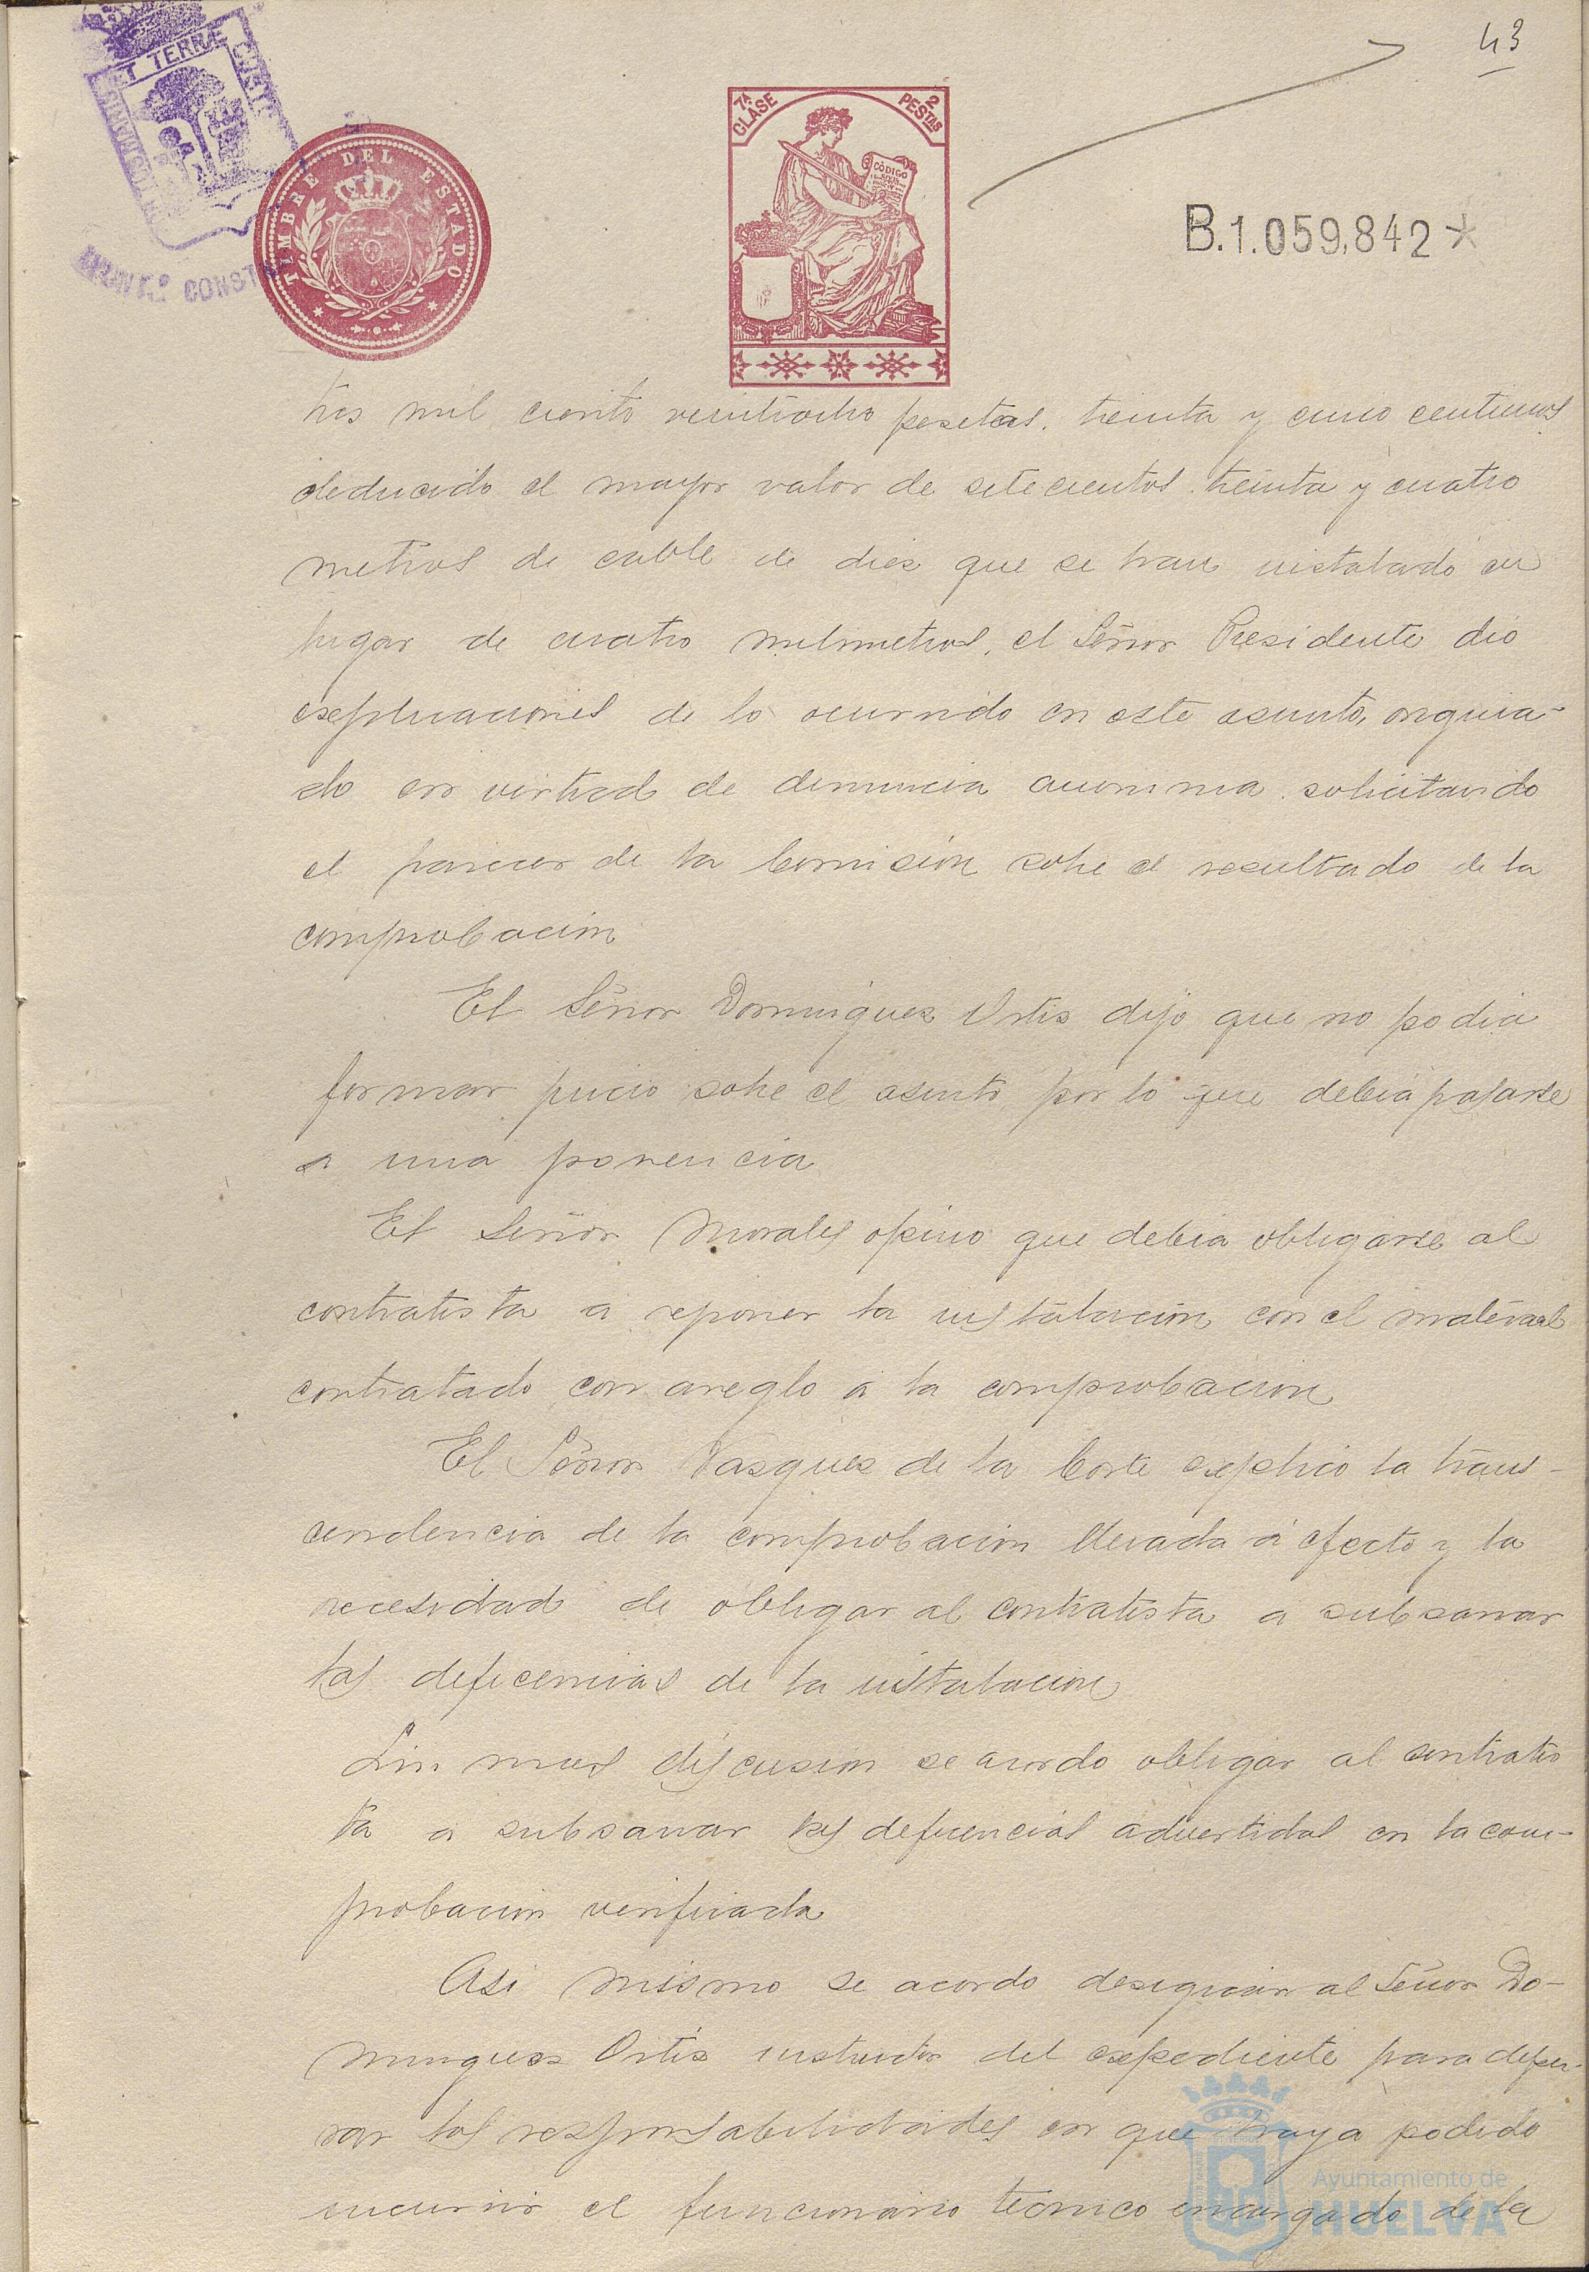 43
ET TERRÆ
CUSTO
AYUNT.º CONST
TIMBRE DEL ESTADO
7ª CLASE
2 PESTAS
CÓDIGO
B.1.059,842*
tres mil ciento veintiocho pesetas. treinta y cinco centimos
deducido el mayor valor de setecientos treinta y cuatro
metros de cable de diez que se han instalado en
lugar de cuatro milimetros, el Señor Presidente dio
explicaciones de lo ocurrido en este asunto, origina-
do en virtud de denuncia anonima solicitando
el parecer de la Comisión sobre el resultado de la
comprobacion
El Señor Dominguez Ortiz dijo que no podia
formar juicio sobre el asunto por lo que debia pasarse
a una ponencia
El Señor Morales opino que debia obligarse al
contratista a reponer la instalacion con el material
contratado con areglo a la comprobacion
El Señor Vazquez de la Corte explicó la trans-
cendencia de la comprobacion llevada á efecto y la
necesidad de obligar al contratista a subsanar
las deficencias de la instalacion
Sin mas discusion se acordo obligar al contratis
ta a subsanar las deficiencias advertidas en la com-
probacion verificada
Asi mismo se acordo designar al Señor Do-
minguez Ortiz instructor del expediente para depu-
rar las responsabilidades en que haya podido
incurrir el funcionario tecnico encargado de la
Ayuntamiento de
HUELVA